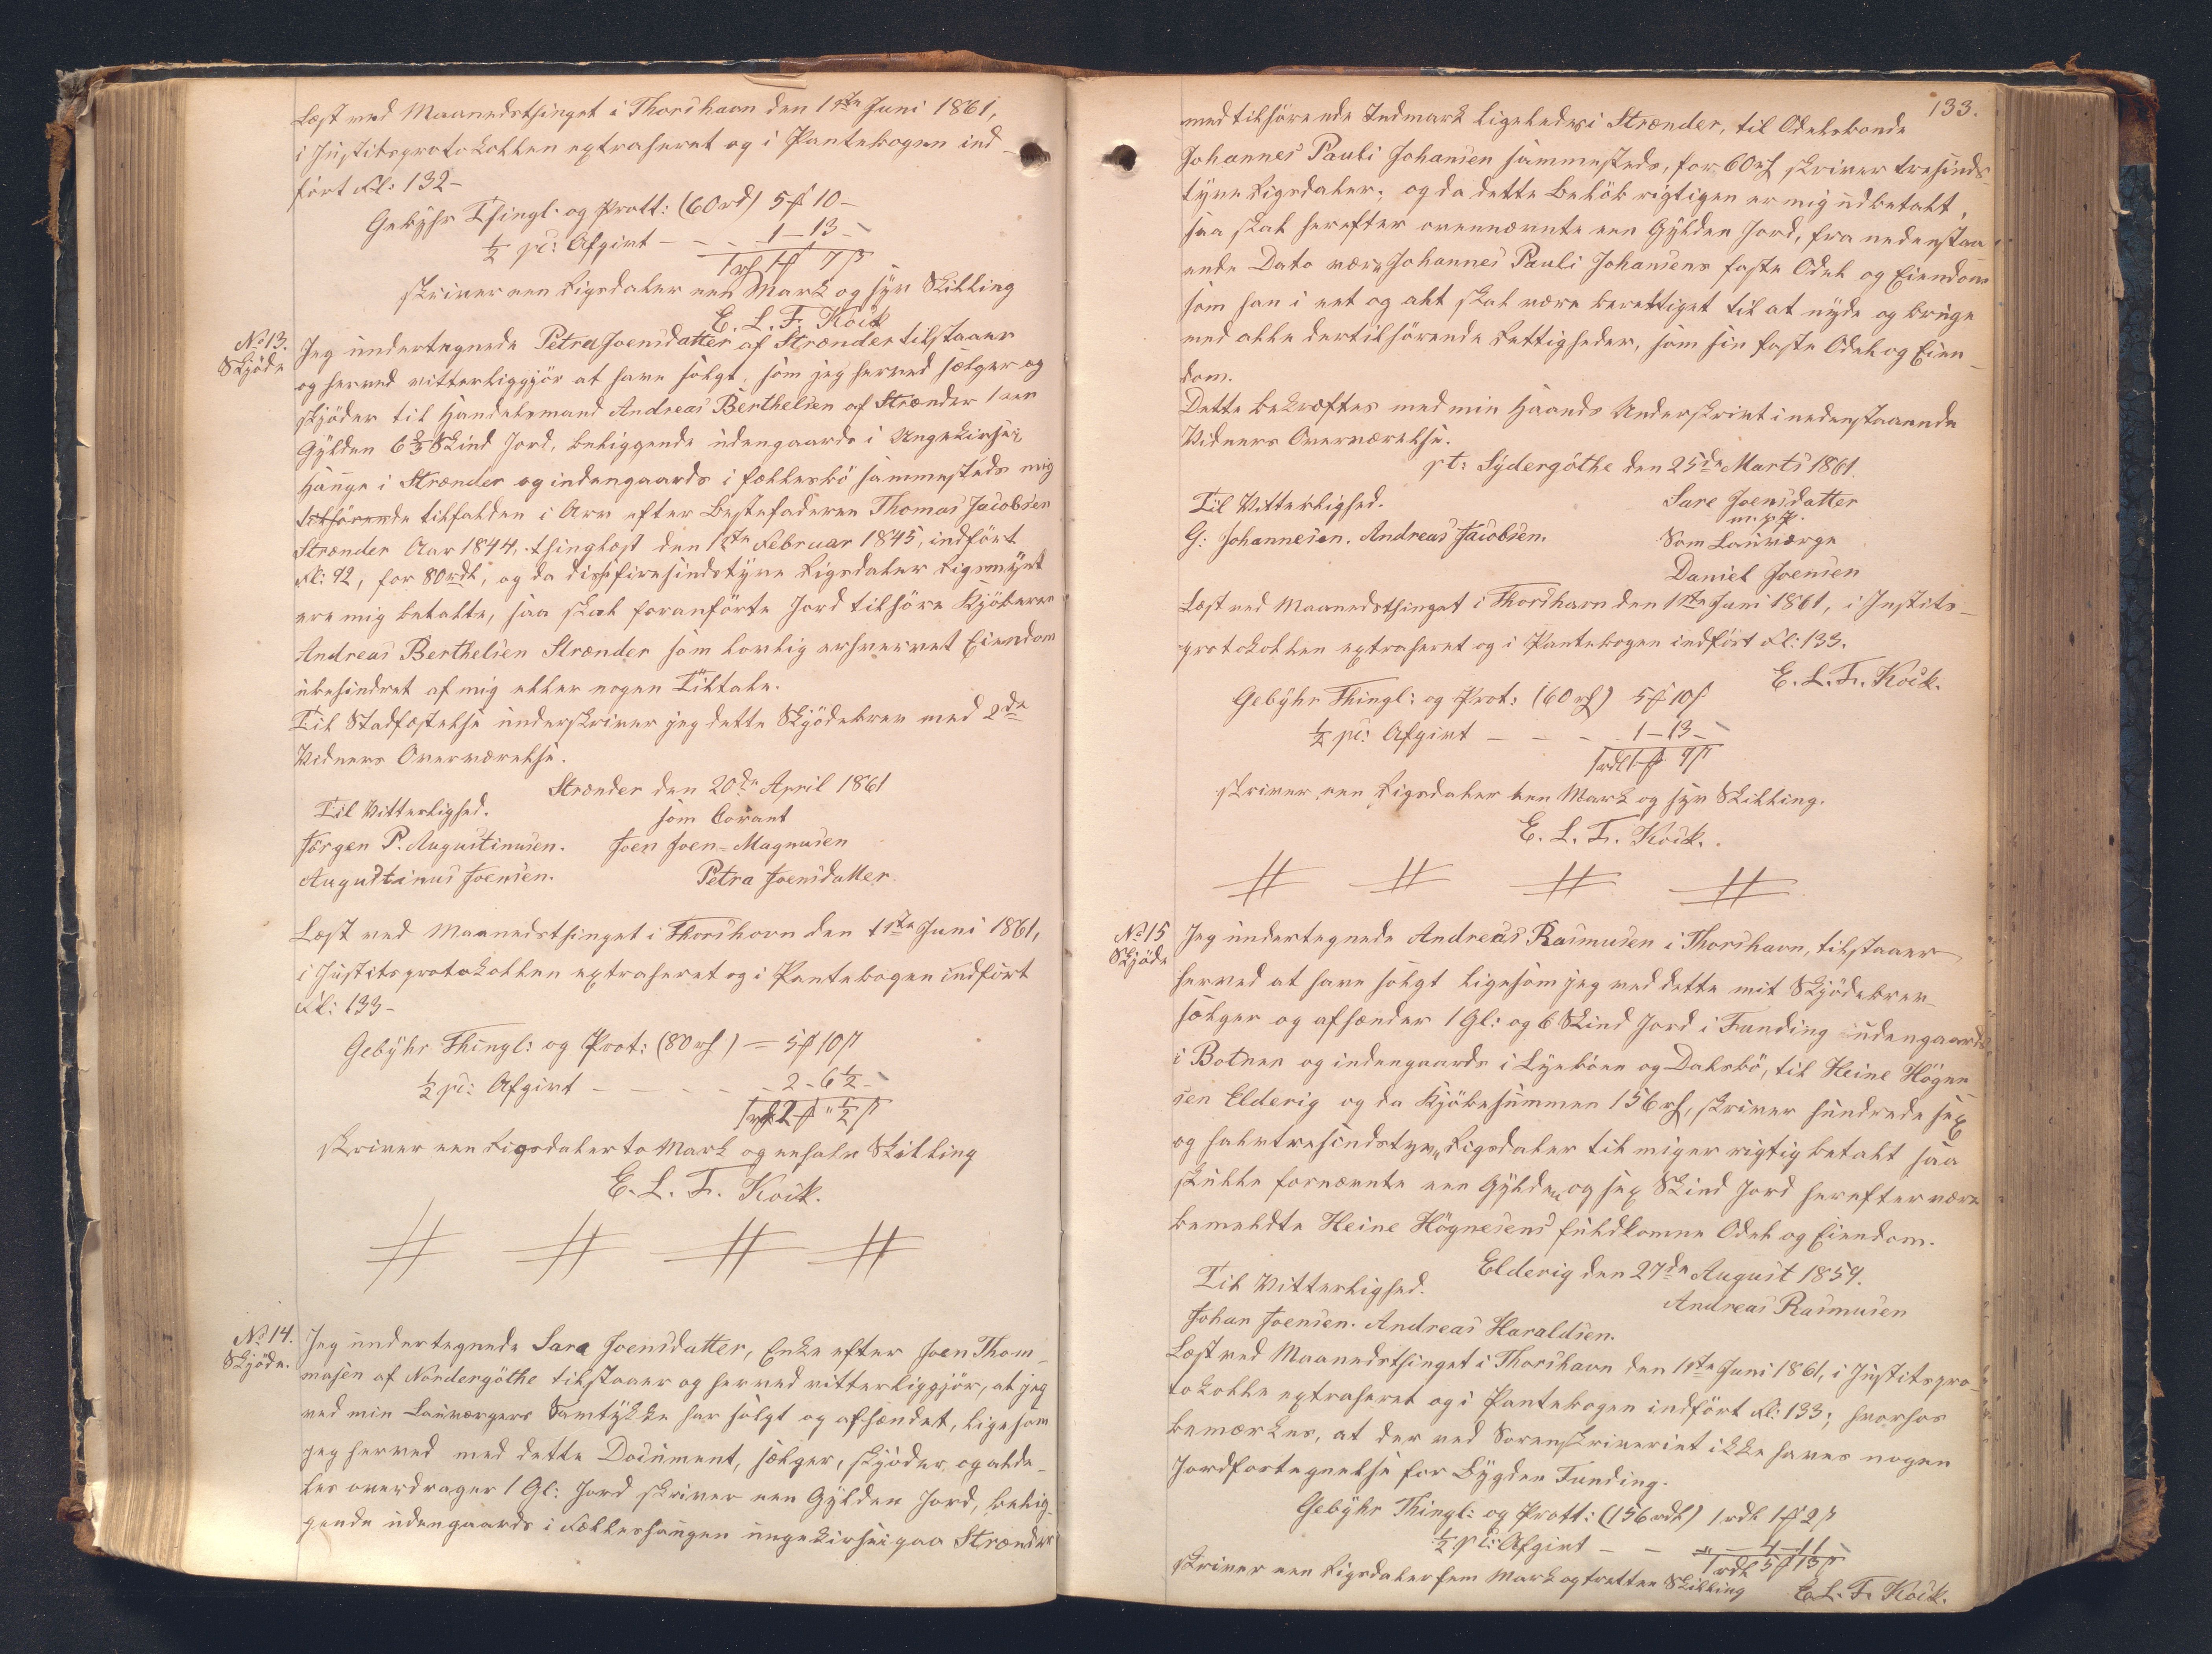 Læst ved Maanedsthinget i Thorshavn den 1ste Juni 1861,
i Justitsprotokollen extraheret og i Pantebogen ind-
ført Fl: 132-
Gebyhr Thingl: og Prott: (60rd) 5 ₥ 10 -
½ pC: Afgivt - - - 1 - 13 -
1 rd 1 ₥ 7 ß
skriver een Rigsdaler een Mark og syv Skilling
E. L. F. Koch
No 13.
Skjöde
Jeg undertegnede Petra Joensdatter af Strænder tilstaaer
og herved vitterliggjör at have solgt, som jeg herved sælger og
skjöder til Handelsmand Andreas Berthelsen af Strænder 1 een
Gylden 6⅔ Skind Jord, beliggende udengaards i
Hauge i Strænder og indengaards i Fællesbö sammesteds mig
tilhörende tilfalden i Arv efter Bestefaderen Thomas Jacobsen
Strænder Aar 1844, thinglæst den 1ste Februar 1845, indført
Fl: 92, for 80rdl, og da disse firesindstyve Rigsdaler Rigsmynt
ere mig betalte, saa skal foranförte Jord tilhöre Kjöberen
Andreas Berthelsen Strænder som lovlig erhvervet Eiendom
ubehindret af mig eller nogen Tiltale.
Til Stadfæstelse underskriver jeg dette Skjödebrev med 2de
Vidners Overværelse.
Strænder den 20de April 1861
Til Vitterlighed. som Cavant
Jörgen P. Augustinusen. Joen Joen-Magnusen
Augustinus Joensen. Petra Joensdatter.
Læst ved Maanedsthinget i Thorshavn den 1ste Juni 1861,
i Justitsprotokollen extraheret og i Pantebogen indført
Fl: 133-
Gebyhr Thingl: og Prot: (80 rd) = 5 ₥ 10 ß
½ pC: Afgivt - - - - - 2 - 6½ -
1 rd 2 ₥ " ½ ß
skriver een Rigsdaler to Mark og en halv Skilling
E. L. F. Koch.
No 14.
Skjöde.
Jeg undertegnede Sara Joensdatter, Enke efter Joen Thom-
masen af Nordergöthe tilstaaer og herved vitterliggjör, at jeg
ved min Lauværgers Samtykke har solgt og afhændet, ligesom
jeg herved med dette Document, sælger, skjöder og alde-
les overdrager 1 Gl: Jord skriver een Gylden Jord, belig-
gende udengaards i Fælleshaugen paa Strænder
133.
med tilhörende Indmark ligeledes i Strænder, til Odelsbonde
Johannes Pauli Johansen sammesteds, for 60 rd skriver tresinds-
tyve Rigsdaler; og da dette Belöb rigtigen er mig udbetalt,
saa skal herefter ovennævnte een Gylden Jord, fra nedenstaa-
ende Dato være Johannes Pauli Johansens faste Odel og Eiendom
som han i eet og alt skal være berettiget til at nyde og bruge
med alle dertilhörende Rettigheder, som sin faste Odel og Eien-
dom.
Dette bekræftes med min Haands Underskrivt i nedenstaaende
Vidners Overværelse.
pt: Sydergöthe den 25de Marts 1861.
Til Vitterlighed. Sare Joensdatter
m. f. P.
G: Johannesen. Andreas Jacobsen. Som Lauværge
Daniel Joensen
Læst ved Maanedsthinget i Thorshavn den 1ste Juni 1861, i Justits-
protokollen extraheret og i Pantebogen indført Fl: 133.
E. L. F. Koch.
Gebyhr Thingl: og Prot: (60 rd) 5 ₥ 10 ß
½ pC: Afgivt - - - 1 - 13 -
1 rdl 1 ₥ 7 ß
skriver een Rigsdaler een Mark og syv Skilling.
E. L. F. Koch.
No 15
Skjöde
Jeg undertegnede Andreas Rasmusen i Thorshavn, tilstaaer
herved at have solgt ligesom jeg ved dette mit Skjödebrev
sælger og afhænder 1 Gl: og 6 Skind Jord i Funding udengaards
i Botnen og indengaards i Lyeböen og Dalsbö, til Heine Högne-
sen Elderig og da Kjöbesummen 156 rd, skriver hundrede sex
og halvtresindstyve Rigsdaler til mig er rigtig betalt saa
skulle fornævnte een Gylden og sex Skind Jord herefter være
bemeldte Heine Högnesens fuldkomne Odel og Eiendom.
Elderig den 27de August 1859.
Til Vitterlighed. Andreas Rasmusen
Johan Joensen. Andreas Haraldsen.
Læst ved Maanedsthinget i Thorshavn den 1ste Juni 1861, i Justitspro-
tokolle extraheret og i Pantebogen indført Fl: 133; hvorhos
bemærkes, at der ved Sorenskriveriet ikke haves nogen
Jordfortegnelse for Bygden Funding.
Gebyhr Thingl: og Prott: (156 rdl) 1 rdl 1 ₥ 2 ß
½ pC: Afgivt - - - " - 4 - 11 -
1 rdl 5 ₥ 13 ß
skriver een Rigsdaler fem Mark og tretten Skilling E. L. F. Koch.